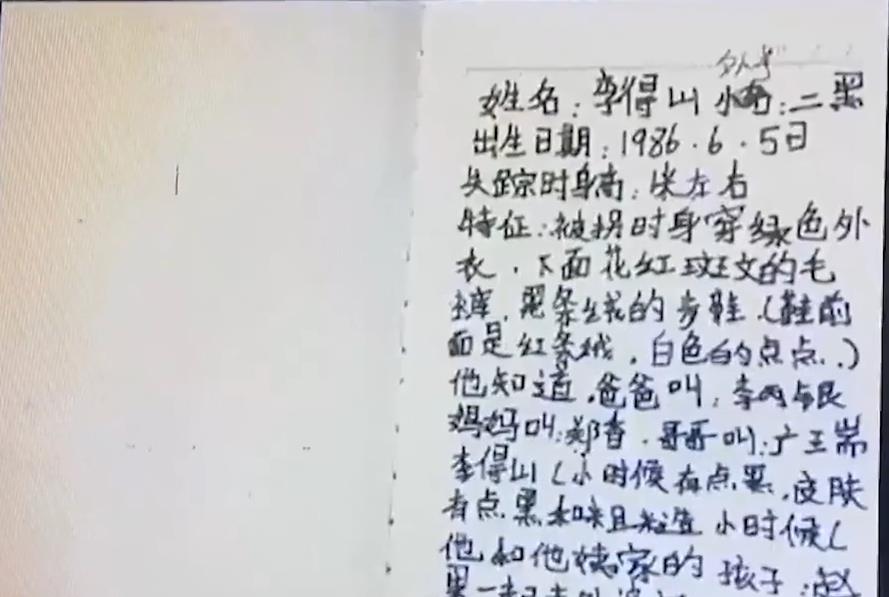 外号
姓名:李得山 小名:二黑
出生日期:1986.6.5日
失踪时身高:米左右
特征:被拐时身穿绿色外
衣.下面花红斑文的毛
裤.黑条绒的步鞋.(鞋前
面是红条绒.白色的点点..)
他知道.爸爸叫:李
妈妈叫:郑香.哥哥叫:
李得山(小时候有点黑.皮肤
有点黑 小时候(
他和他姨家的孩子:赵
黑一起